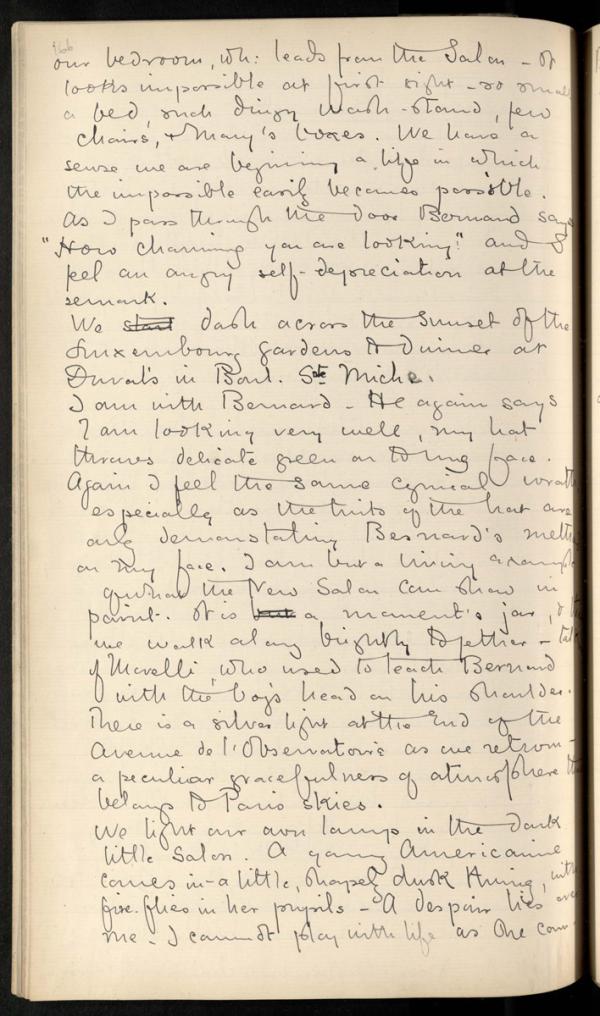 166
our bedroom, wh: leads from the Salon - It
looks impossible at first sight - so small
a bed, such dingy wash-stand, few
chairs, & Mary's boxes. We have a
sense we are beginning a life in which
the impossible easily becomes possible.
As I pass through the door Bernard says
"How charming you are looking!" and I
feel an angry self-depreciation at the
remark.
We start dash across the Sunset of the
Luxembourg gardens to dinner at
Duval's in Boul. Ste Miche.
I am with Bernard - He again says
I am looking very well, my hat
throws delicate green on to my face.
Again I feel the same cynical wrath
especially as the tints of the hat are
only demonstrating Bernard's
on my face. I am but a living example
of what the New Salon can show in
paint. It is but a moment's jar, &
we walk along brightly together - talk
of Morelli, who used to teach Bernard
with the boy's head on his shoulder.
There is a silver light at the End of the
Avenue de l'Observatoire as we return -
a peculiar gracefulness of atmosphere that
belongs to Paris skies.
We light our own lamps in the dark
little Salon. A young Americaine
comes in - a little, shapely dusk thing, with
fire-flies in her pupils - A despair lies over
me - I cannot play with life as she can